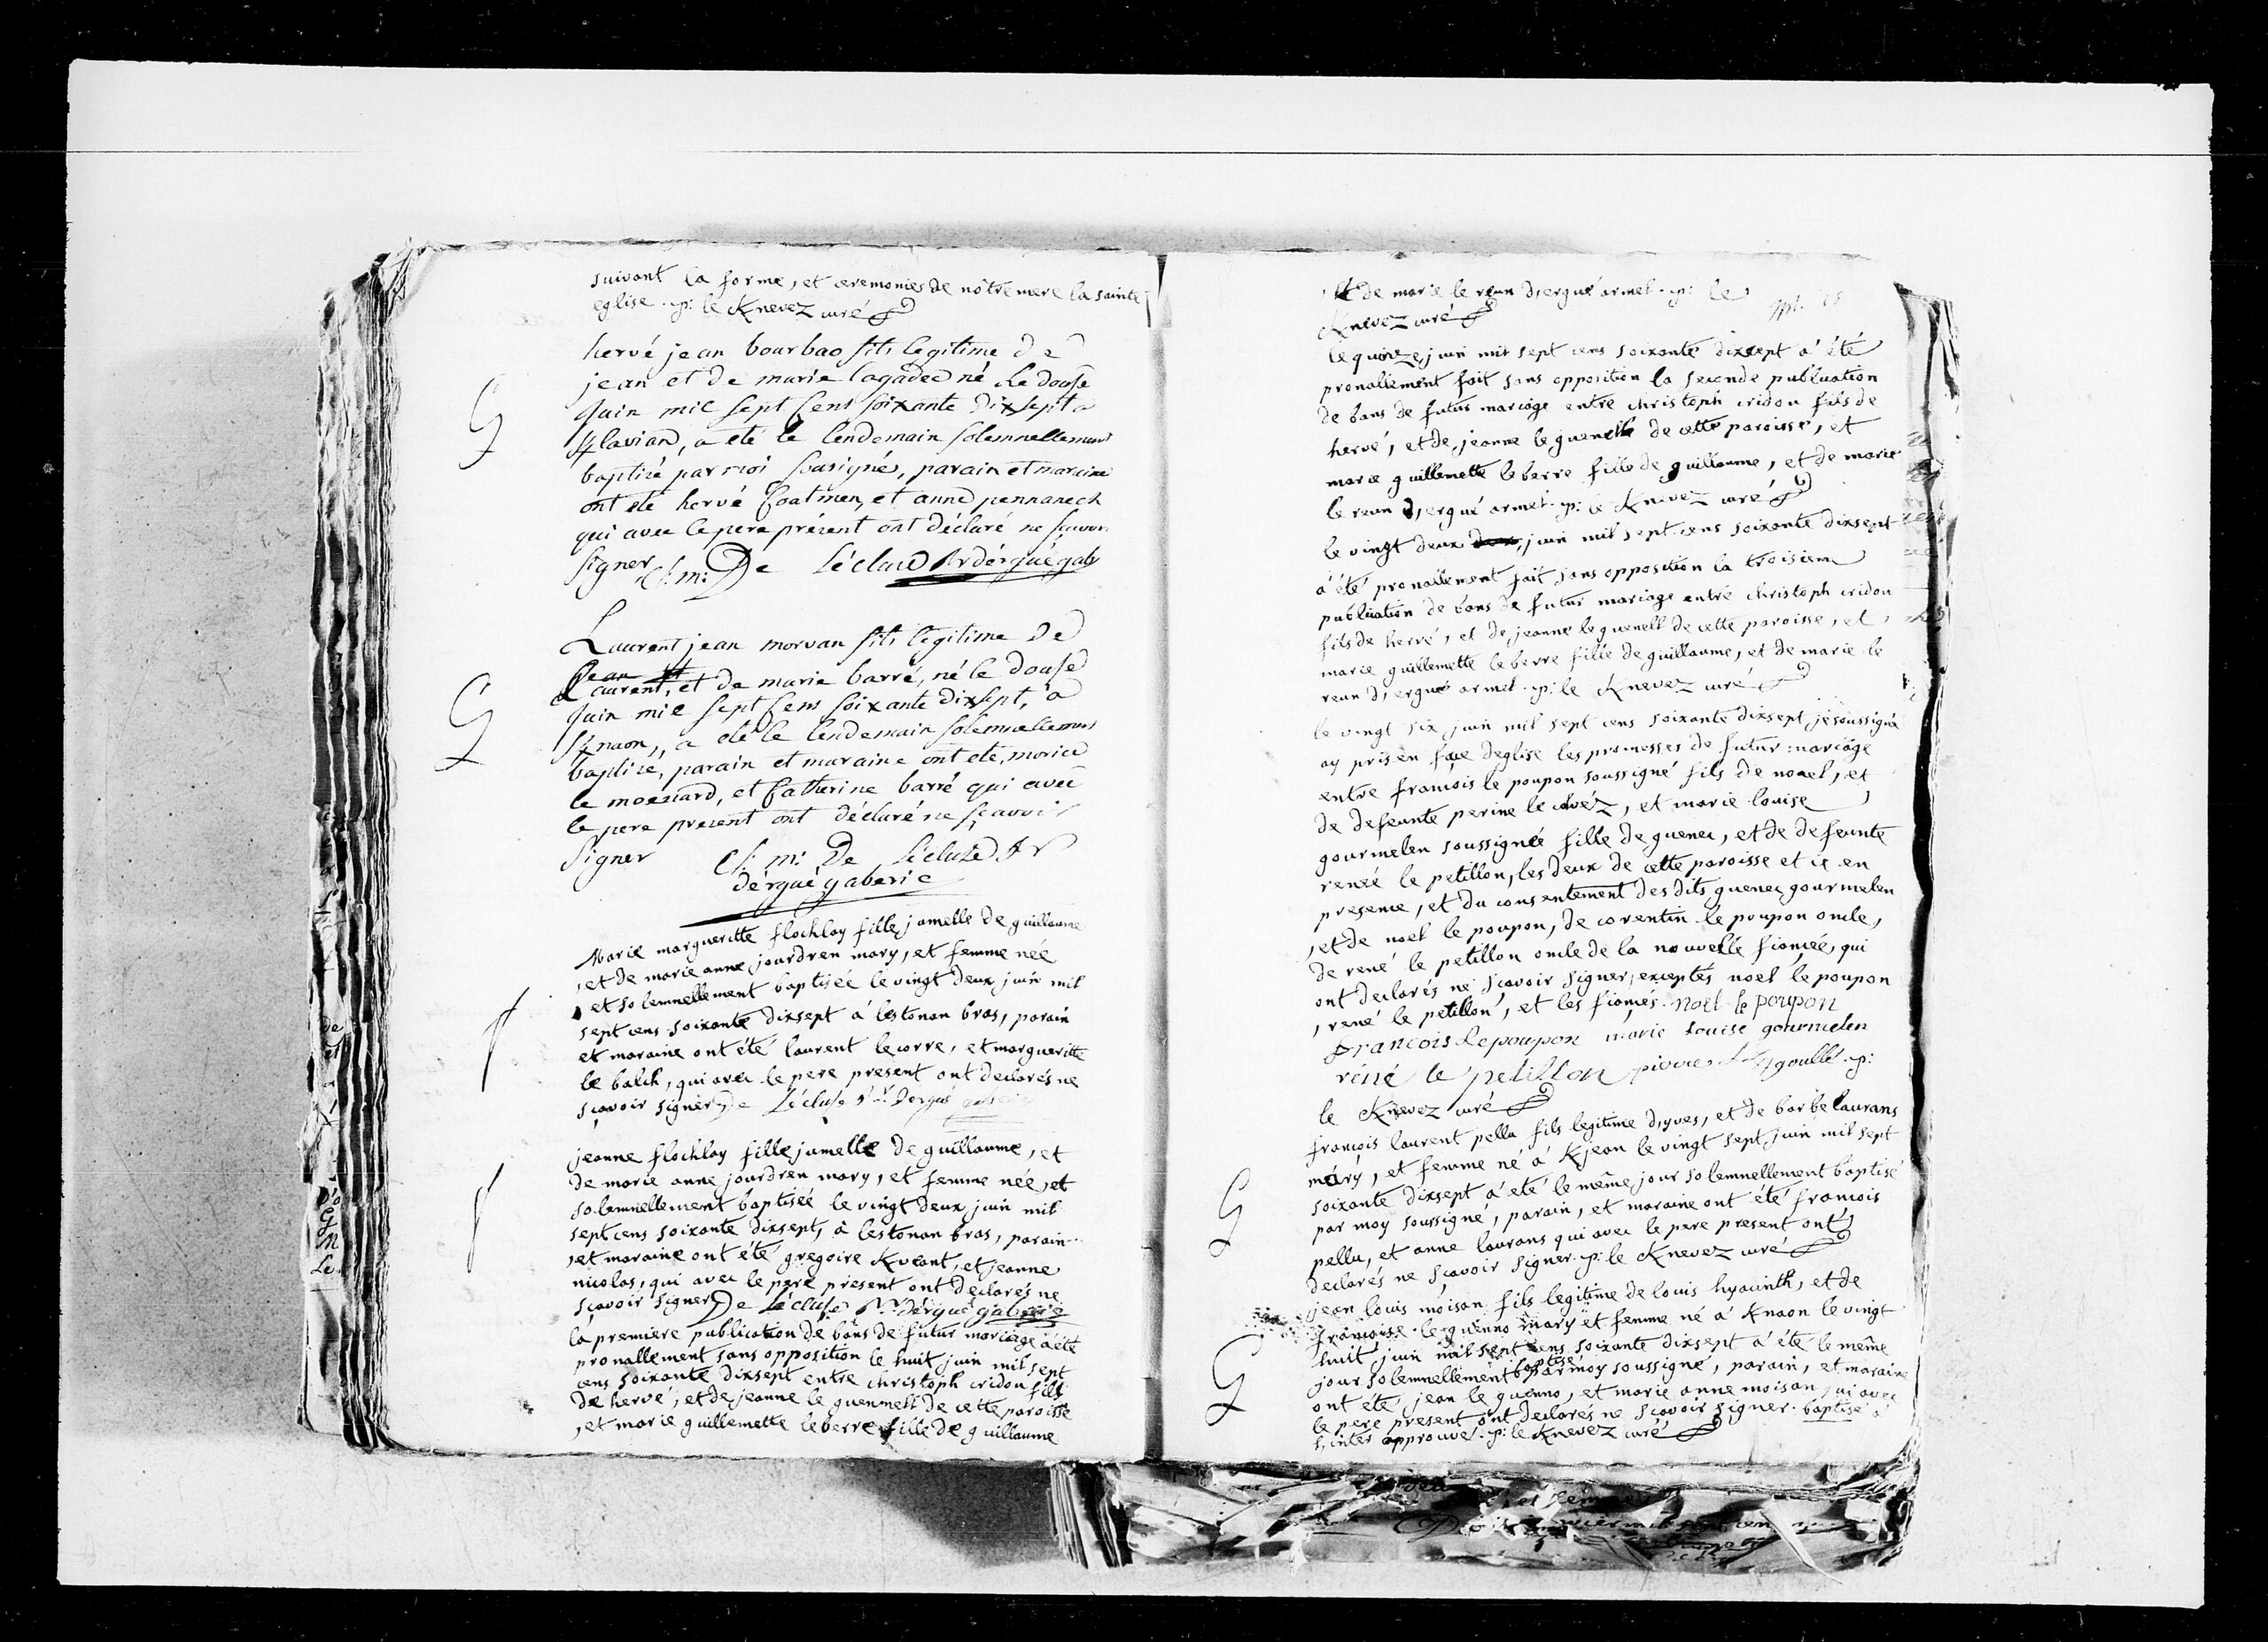 suivant la forme, et ceremonies de nôtre mere la sainte
eglise . p: le Knevez curé
hervé jean bourbao fils legitime de
jean et de marie lagadec né le douse
juin mil sept cens soixante dixsept a
Kflavian, a eté le lendemain solemnellement
baptizé par moi sousigné, parain et maraine
ont eté hervé Coatmen, et anne pennanech
qui avec le pere présent ont déclaré ne scavoir
signer Cl: m: De Lécluse Rr dérgué gab
Laurent jean morvan fils legitime de
Laurent, et de marie barré, né le douse
juin mil sept cens soixante dixsept, à
Knaon, a eté le lendemain solemnellement
baptizé, parain et maraine ont eté, morice
le moenard, et Catherine barré qui avec
le pere present ont déclaré ne scavoir
signer Cl: m: De Lécluse Rr
dérgué gaberic
Marie margueritte flochlay fille jamelle de guillaume
, et de marie anne jourdren mary, et femme née
, et solemnellement baptiséé le vingt deux juin mil
sept cens soixante dixsept à lestonan bras, parain
et maraine ont été laurent lecorre, et margueritte
le balch, qui avec le pere present ont declarés ne
scavoir signer De Lécluse Rr Dergué gaberic
jeanne flochlay fille jumelle de guillaume, et
de marie anne jourdren mary, et femme née, et
solemnellement baptiséé le vingt deux juin mil
sept cens soixante dixsept, à lestonan bras, parain
, et maraine ont été gregoire Kveant, et jeanne
nicolas, qui avec le pere present ont declarés ne
scavoir signer De Lécluse Rr dérgué gaberic
la premiere publication de bans de futur mariage a été
pronallement sans opposition le huit juin mil sept
cens soixante dixsept entre christoph cridou fils
de hervé, et de jeanne le guennell de cette paroisse
, et marie guillemette leberre fille de guillaume
et de marie le reun d'ergué armel . p: le
Knevez curé
le quinze juin mil sept cens soixante dixsept a été
pronallement fait sans opposition la seconde publication
de bans de futur mariage entre christoph cridou fils de
hervé, et de jeanne leguenell de cette paroisse, et
marie guillemette leberre fille de guillaume, et de marie
le reun d'ergué armel . p: le Knevez curé
le vingt deux juin mil sept cens soixante dixsept
a été pronallement fait sans opposition la troisieme
publication de bans de futur mariage entre christoph cridou
fils de hervé, et de jeanne leguenell de cette paroisse, et
marie guillemette leberre fille de guillaume, et de marie le
reun d'ergué armel . p: le Knevez curé
le vingt six juin mil sept cens soixante dixsept je soussigné
ay pris en face d'eglise les promesses de futur mariage
entre francois le poupon soussigné fils de noael, et
de defeunte perine le , et marie louise
gourmelen soussignéé fille de guenec, et de defeunte
renéé le petillon, les deux de cette paroisse et ce en
presence, et du consentement des dits guenec gourmelen
, et de noel le poupon, de corentin le poupon oncle,
de rené le petillon oncle de la nouvelle fiancéé, qui
ont declarés ne scavoir signer, exceptés noel le poupon
, rené le petillon, et les fiancés . noël le poupon
francois Lepoupon marie Louise gourmelen
réné le petillon pierre Le goullé . p:
le Knevez curé
francois laurent pellu fils legitime d'yves, et de barbe laurans
mary, et femme né a Kjean le vingt sept juin mil sept
soixante dixsept a été le même jour solemnellement baptisé
par moy soussigné, parain, et maraine ont été francois
pellu, et anne laurans qui avec le pere present ont
declarés ne scavoir signer . p: le Knevez curé
jean louis moisan fils legitime de louis hyacinth, et de
francoise leguenno mary et femme né a Knaon le vingt
huit juin mil sept cens soixante dixsept a été le même
jour solemnellement baptisé par moy soussigné, parain, et maraine
ont été jean le guenno, et marie anne moisan qui avec
le pere present ont declarés ne scavoir signer . baptisé a
l'inter approuvé . p: le Knevez curé